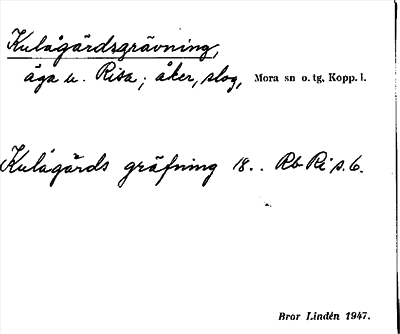 Kulågårdsgrävning,
äga u. Risa; åker, slog, Mora sn o. tg, Kopp. l.
Kulågårds gräfning 18.. Rb Ri s. 6.
Bror Lindén 1947.